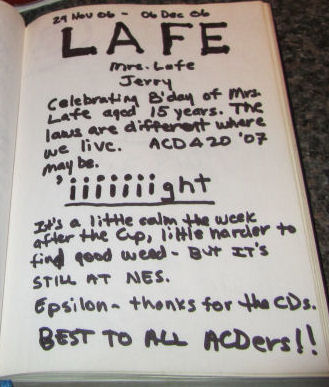 29 Nov 06 - 06 Dec 06
LAFE
Mrs. Lafe
Jerry
Celebrating B'day of Mrs.
Lafe aged 15 years. The
laws are different where
we live. ACD420 '07
maybe.
'iiiiiiight
It's a little calm the week
after the Cup, little harder to
find good weed - BUT IT'S
STILL AT NES.
Epsilon - thanks for the CDs.
BEST TO ALL ACDers!!